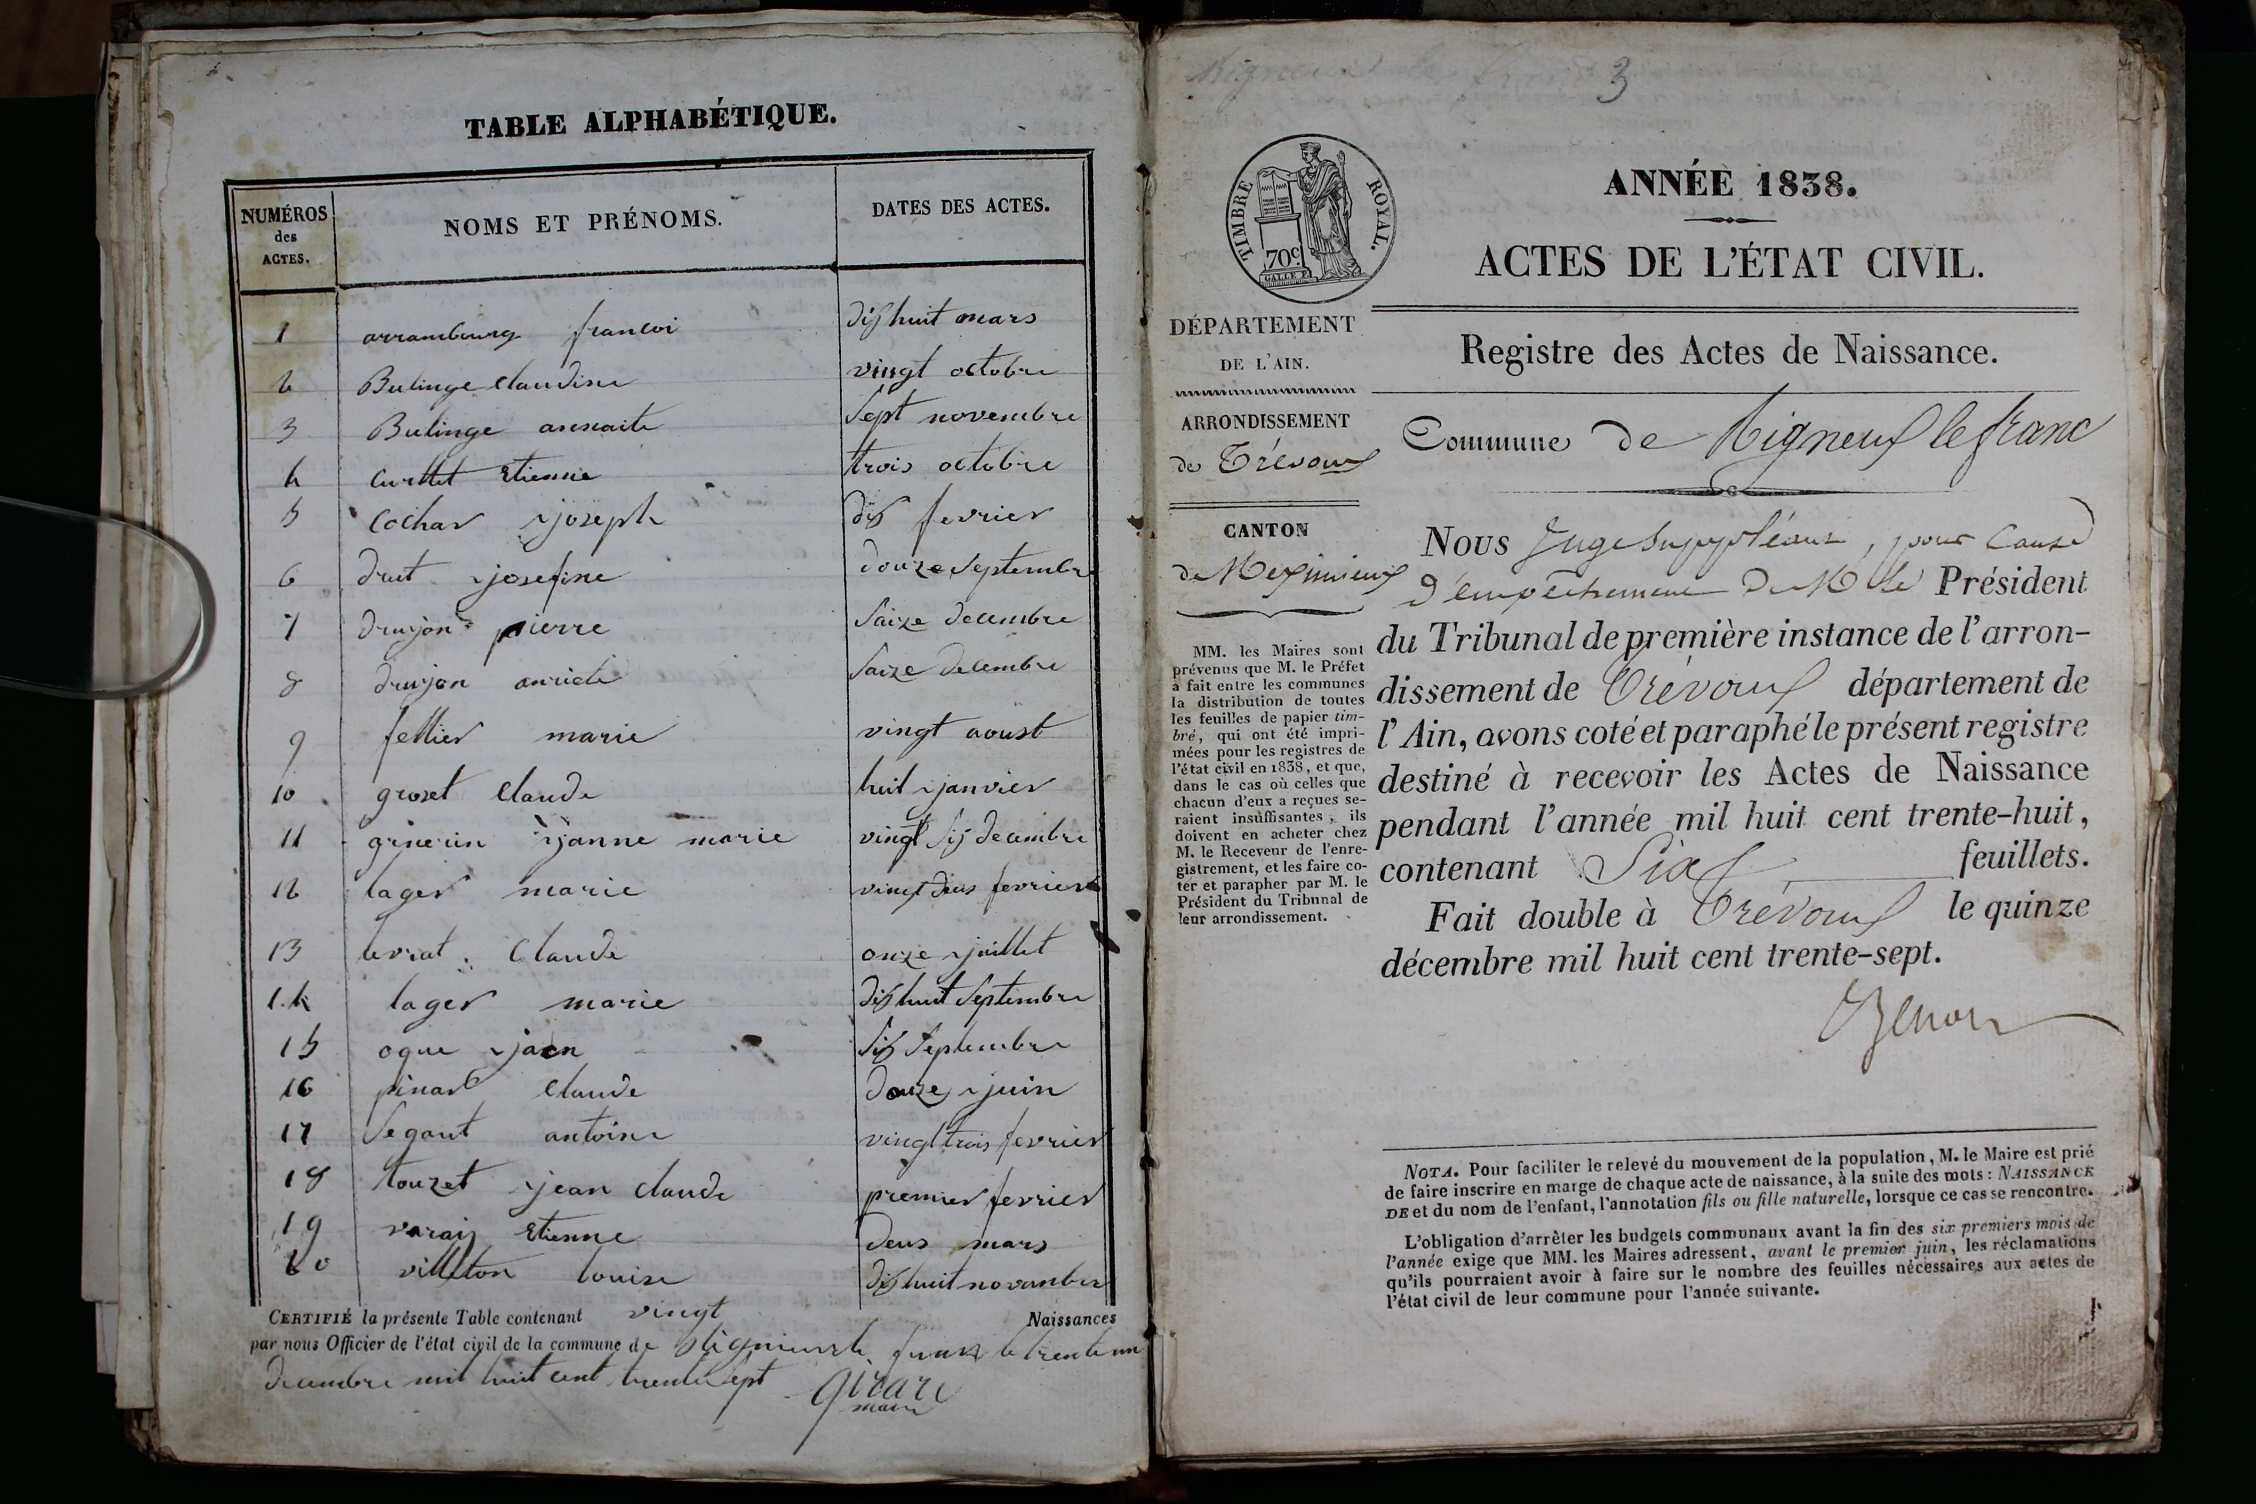 TABLE ALPHABÉTIQUE.
NUMÉROS des ACTES. NOMS ET PRÉNOMS. DATES DES ACTES.
1 arrambourg francoi dix huit mars
2 Bulinge Claudine vingt octobre
3 Bulinge annaite sept novembre
4 Curttet Etienne trois octobre
5 Cochar joseph dix fevrier
6 drut josefine douze septembre
7 drujon pierre saize decembre
8 drujon anriete saize decembre
9 fellier marie vingt aoust
10 groset Claude huit janvier
11 janne marie vingt six decembre
12 lager marie vingt deus fevrier
13 levrat Claude onze juillet
14 lager marie dix huit septembre
15 ogue jaen six septembre
16 pinar Claude douze juin
17 segaut antoine vingt trois fevrier
18 touzet jean claude premier fevrier
19 Etienne deus mars
20 villeton louise dix huit novembre
CERTIFIÉ la présente Table contenant vingt Naissances
par nous Officier de l'état civil de la commune de le trente un
decembre mil huit cent trente sept girard
maire
3
TIMBRE ROYAL.
70c.
GALLE F.
ANNÉE 1838.
ACTES DE L'ÉTAT CIVIL.
Registre des Actes de Naissance.
DÉPARTEMENT
DE L'AIN.
ARRONDISSEMENT
de Trévoux
CANTON
de Meximieux
MM. les Maires sont
prévenus que M. le Préfet
a fait entre les communes
la distribution de toutes
les feuilles de papier tim-
bré, qui ont été impri-
mées pour les registres de
l'état civil en 1838, et que,
dans le cas où celles que
chacun d'eux a reçues se-
raient insuffisantes, ils
doivent en acheter chez
M. le Receveur de l'enre-
gistrement, et les faire co-
ter et parapher par M. le
Président du Tribunal de
leur arrondissement.
Commune de Rigneux le franc
Nous Juge Suppléant, pour cause
d'empêchement de M. le Président
du Tribunal de première instance de l'arron-
dissement de Trévoux département de
l'Ain, avons coté et paraphé le présent registre
destiné à recevoir les Actes de Naissance
pendant l'année mil huit cent trente-huit,
contenant Six feuillets.
Fait double à Trévoux le quinze
décembre mil huit cent trente-sept.
NOTA. Pour faciliter le relevé du mouvement de la population, M. le Maire est prié
de faire inscrire en marge de chaque acte de naissance, à la suite des mots : NAISSANCE
DE et du nom de l'enfant, l'annotation fils ou fille naturelle, lorsque ce cas se rencontre.
L'obligation d'arrêter les budgets communaux avant la fin des six premiers mois de
l'année exige que MM. les Maires adressent, avant le premier juin, les réclamations
qu'ils pourraient avoir à faire sur le nombre des feuilles nécessaires aux actes de
l'état civil de leur commune pour l'année suivante.